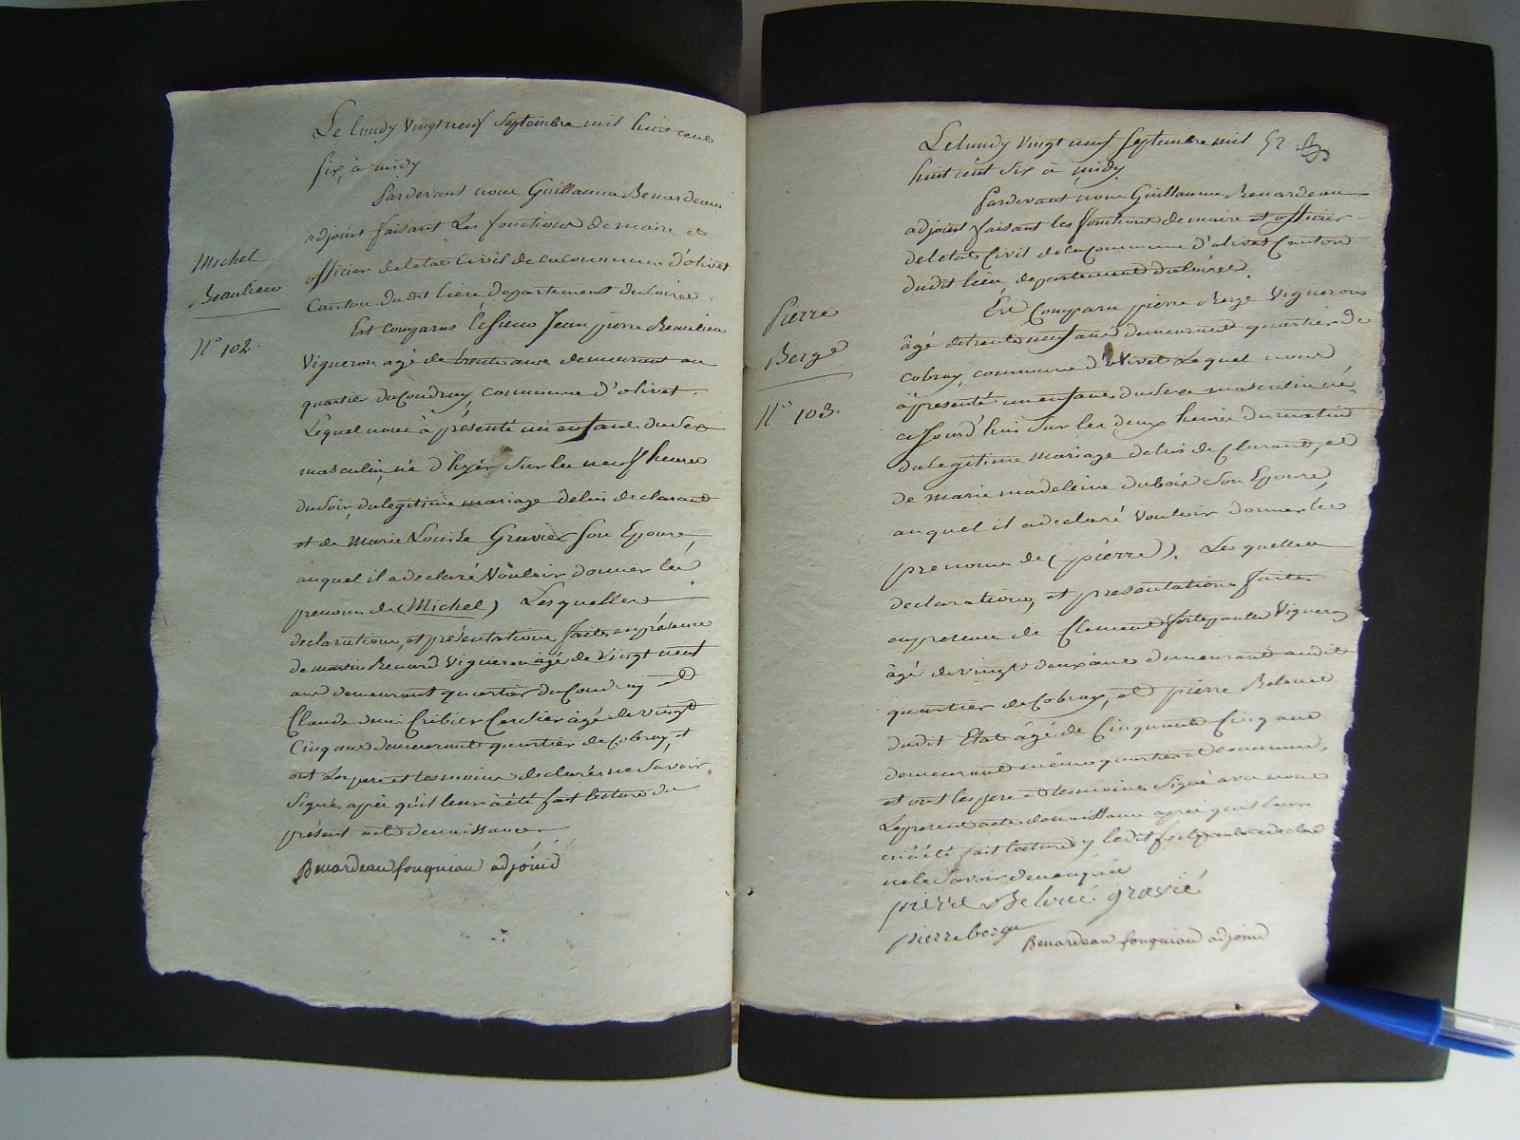 Le lundy vingt neuf septembre mil huit cent
six, à midy
Pardevant nous Guillaume Benardeau
adjoint faisant les fonctions de maire et
officier de letat Civil de la commune d'olivet
Canton dudit lieu departement du loiret.
Michel
Beaulieu
N° 102.
Est comparus le sieur Jean pierre Beaulieu
Vigneron agé de trente ans demeurant au
quartier du Coudray commune d'olivet.
Lequel nous à présenté un enfant du Sex
masculin, né d'hyér sur les neuf heures
du soir, du legitime mariage de lui declarant
et de Marie Louise Gravier son Epouse,
auquel il a declaré Vouloir donner les
prenoms de (Michel) Lesquelles
declarations, et présentations faites en présence
de martin Renard Vigneron agé de Vingt neuf
ans demeurant quartier du Coudray et
Claude Cribier Cerclier agé de vingt
Cinq ans demeurant quartier de Cobray, et
ont les pere et temoins declarés ne Savoir
Signer, après qu'il leur à été fait lecture du
présent acte de naissance
Benardeau fouqueau adjoind
Le lundy vingt neuf septembre mil 52
huit cent six à midy
Pardevant nous Guillaume Benardeau
adjoint faisant les fonctions de maire et officier
de letat Civil de la Commune d'olivet Canton
dudit lieu, departement du loiret.
Pierre
Berge
N° 103.
Est Comparu pierre Berge Vigneron
âgé de trente neuf ans demeurant quartier de
cobray, commune d'olivet Lequel nous
à présenté un enfant du Sexe masculin né
cejourd'hui sur les deux heures du matin
du legitime mariage de lui declarant, et
de marie madeleine dubois Son Epouse,
auquel il a declaré Vouloir donner les
prenoms de (pierre). Lesquelles
declarations, et presentations faites
en presence de Clement Vigneron
âgé de vingt deux ans demeurant audit
quartier de Cobray, et pierre Beloüé
dudit Etat âgé de Cinquante Cinq ans
demeurant même quartier et commune,
et ont les pere et temoins Signé avec nous
Le present acte de naissance après qu'il leur
en à été fait lecture, declaré
ne le Savoir
pierre Beloué gravié
pierre berge
Benardeau fouqueau adjoind